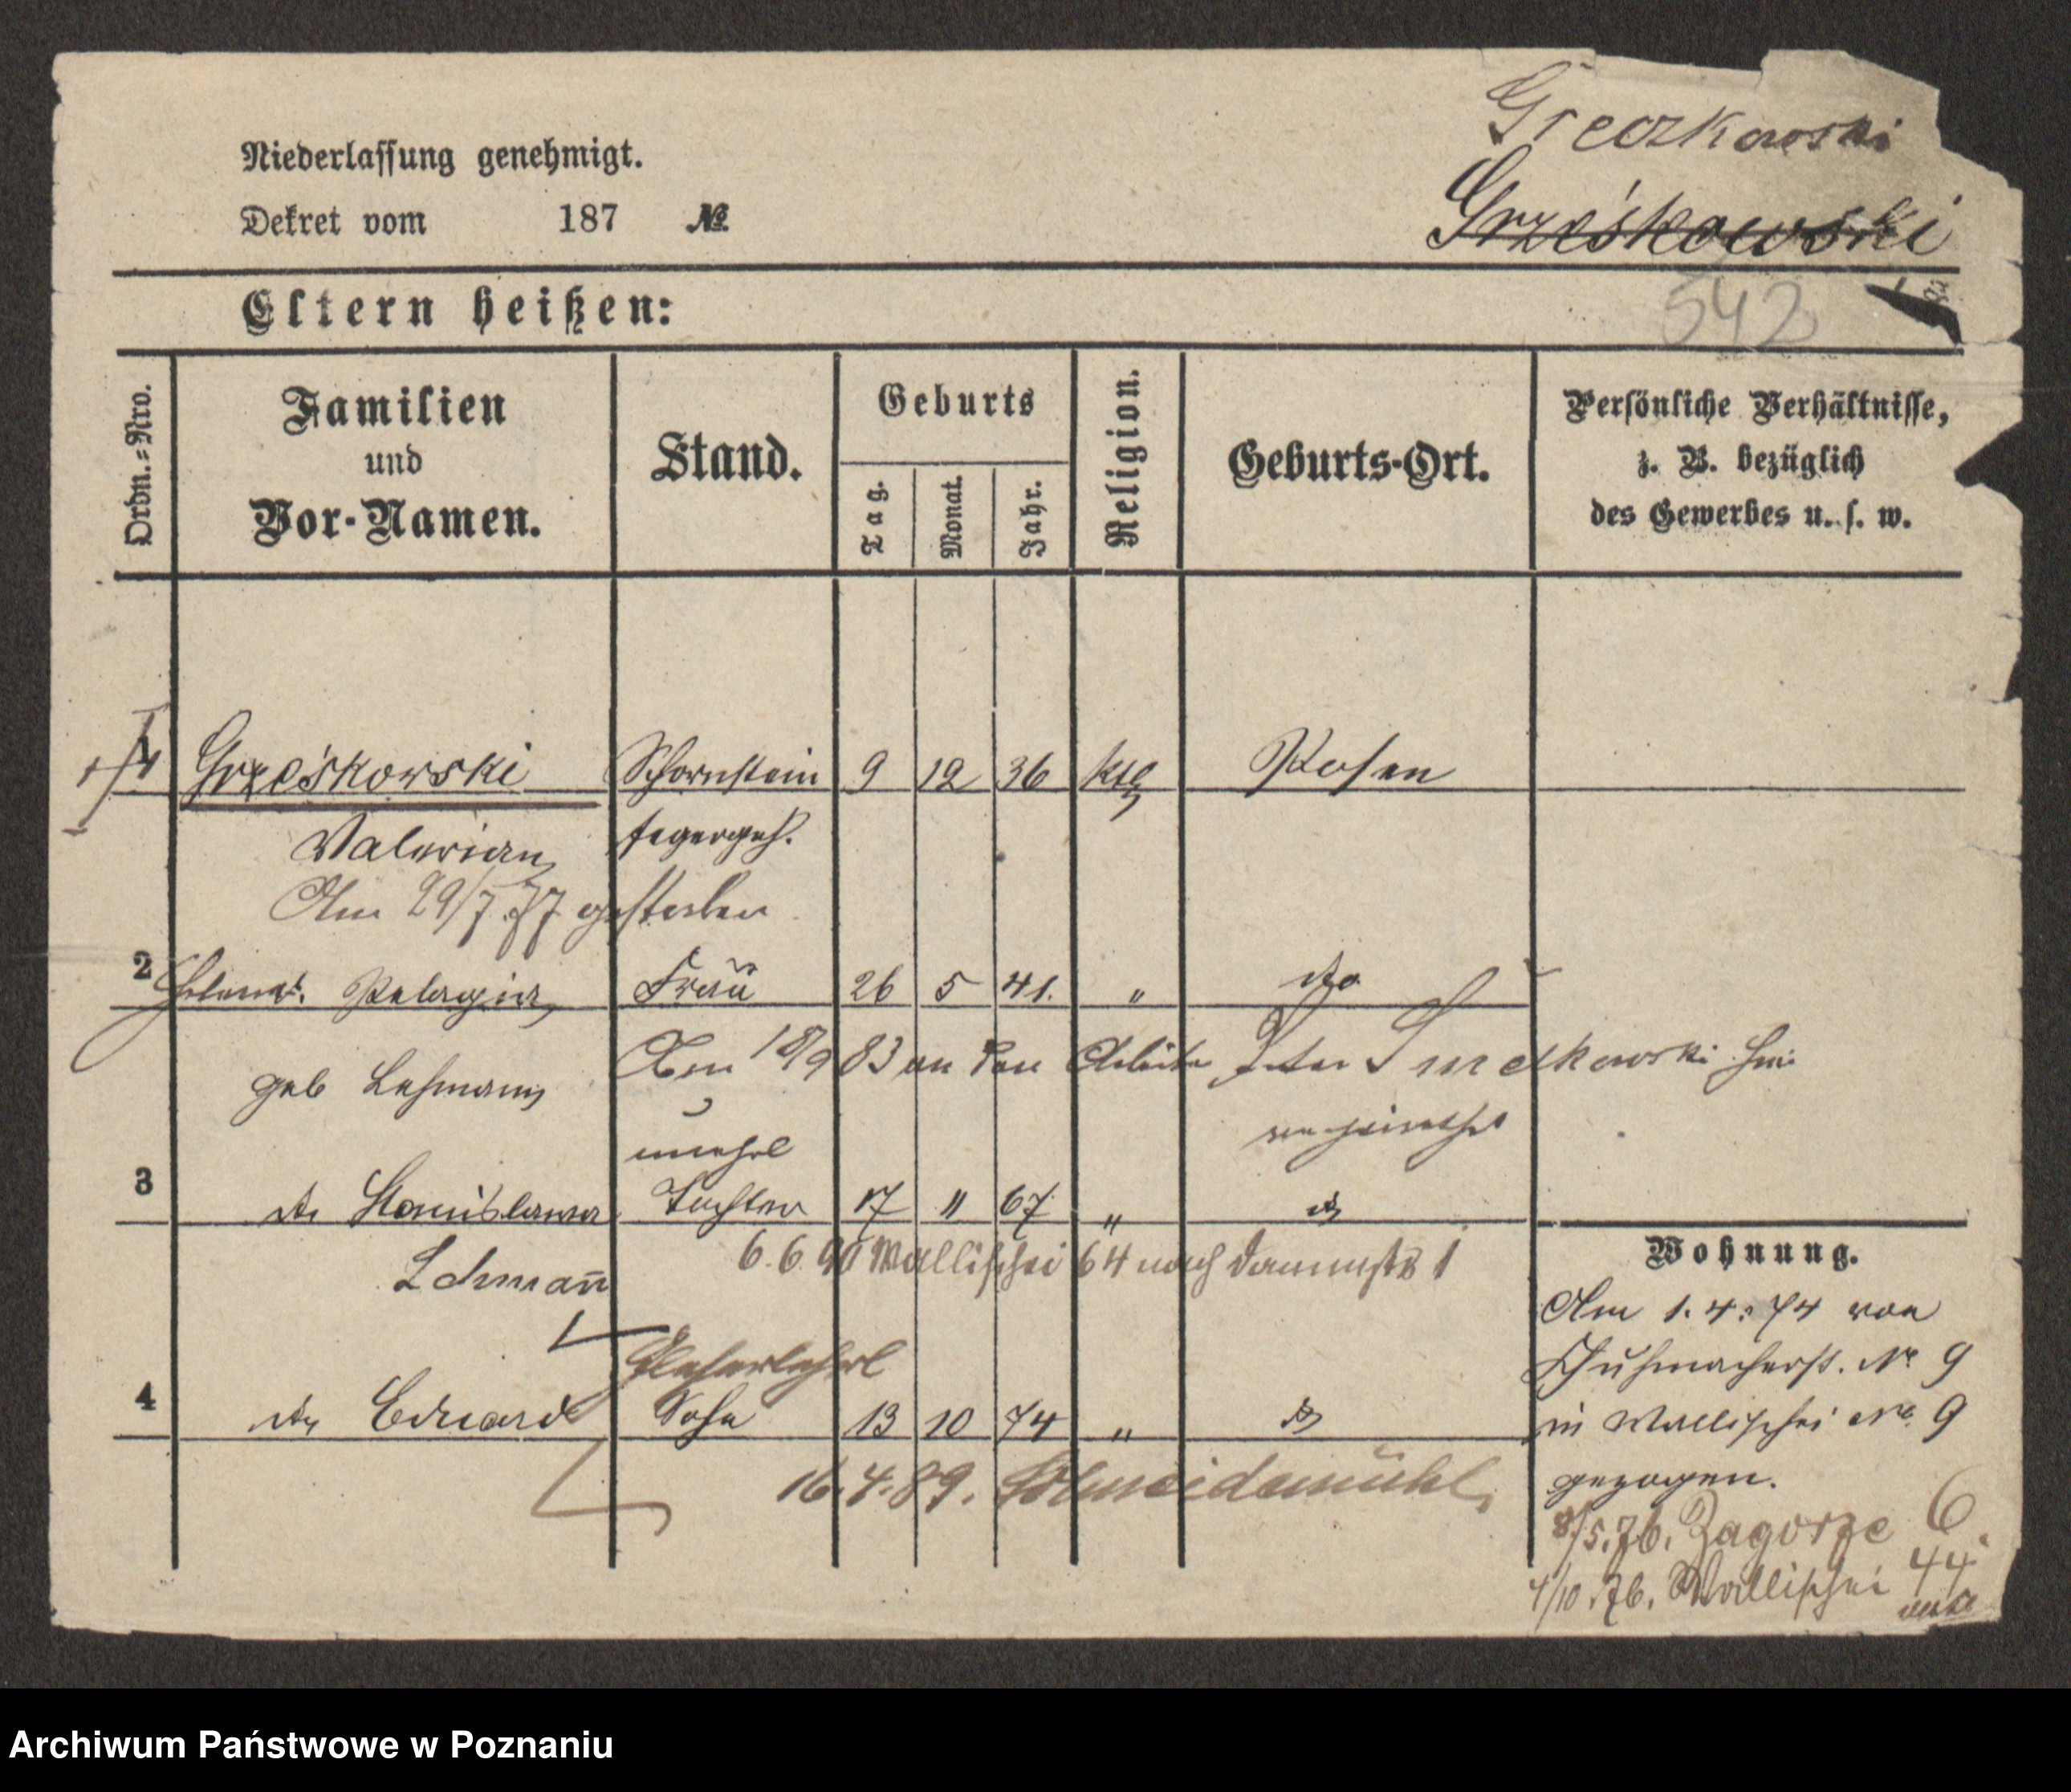 Greczkowski
Niederlassung genehmigt.
Grześkowski
Dekret vom 187 №
542
Eltern heißen:
Ordn.-Nro.
Familien
und
Vor-Namen.
Stand.
Geburts
Tag.
Monat.
Jahr.
Religion.
Geburts-Ort.
Persönliche Verhältnisse,
z. B. bezüglich
des Gewerbes u. s. w.
1 Grześkowski Schornstein 9 12 36 kth Posen
Valerian fegerges.
Am 29/7.77 gestorben
2 Pelagia Frau 26 5 41. " do
geb Lehmann
Am 18/9 83 an den Arbeiter Peter
verheirathet
unehl
3 do Stanislawa Tochter 17 " 67 " do
Lehmann
6.6.90 Wallischei 64 nach Dammstr 1
4 do Eduard Sohn 13 10 74 " do
16.4.89. Schneidemühl.
Wohnung.
Am 1.4.74 von
Schuhmacherst. No 9
in Wallischei No. 9
gezogen.
8/5.76. Zagorze 6.
4/10.76. Wallischei 44
Archiwum Państwowe w Poznaniu